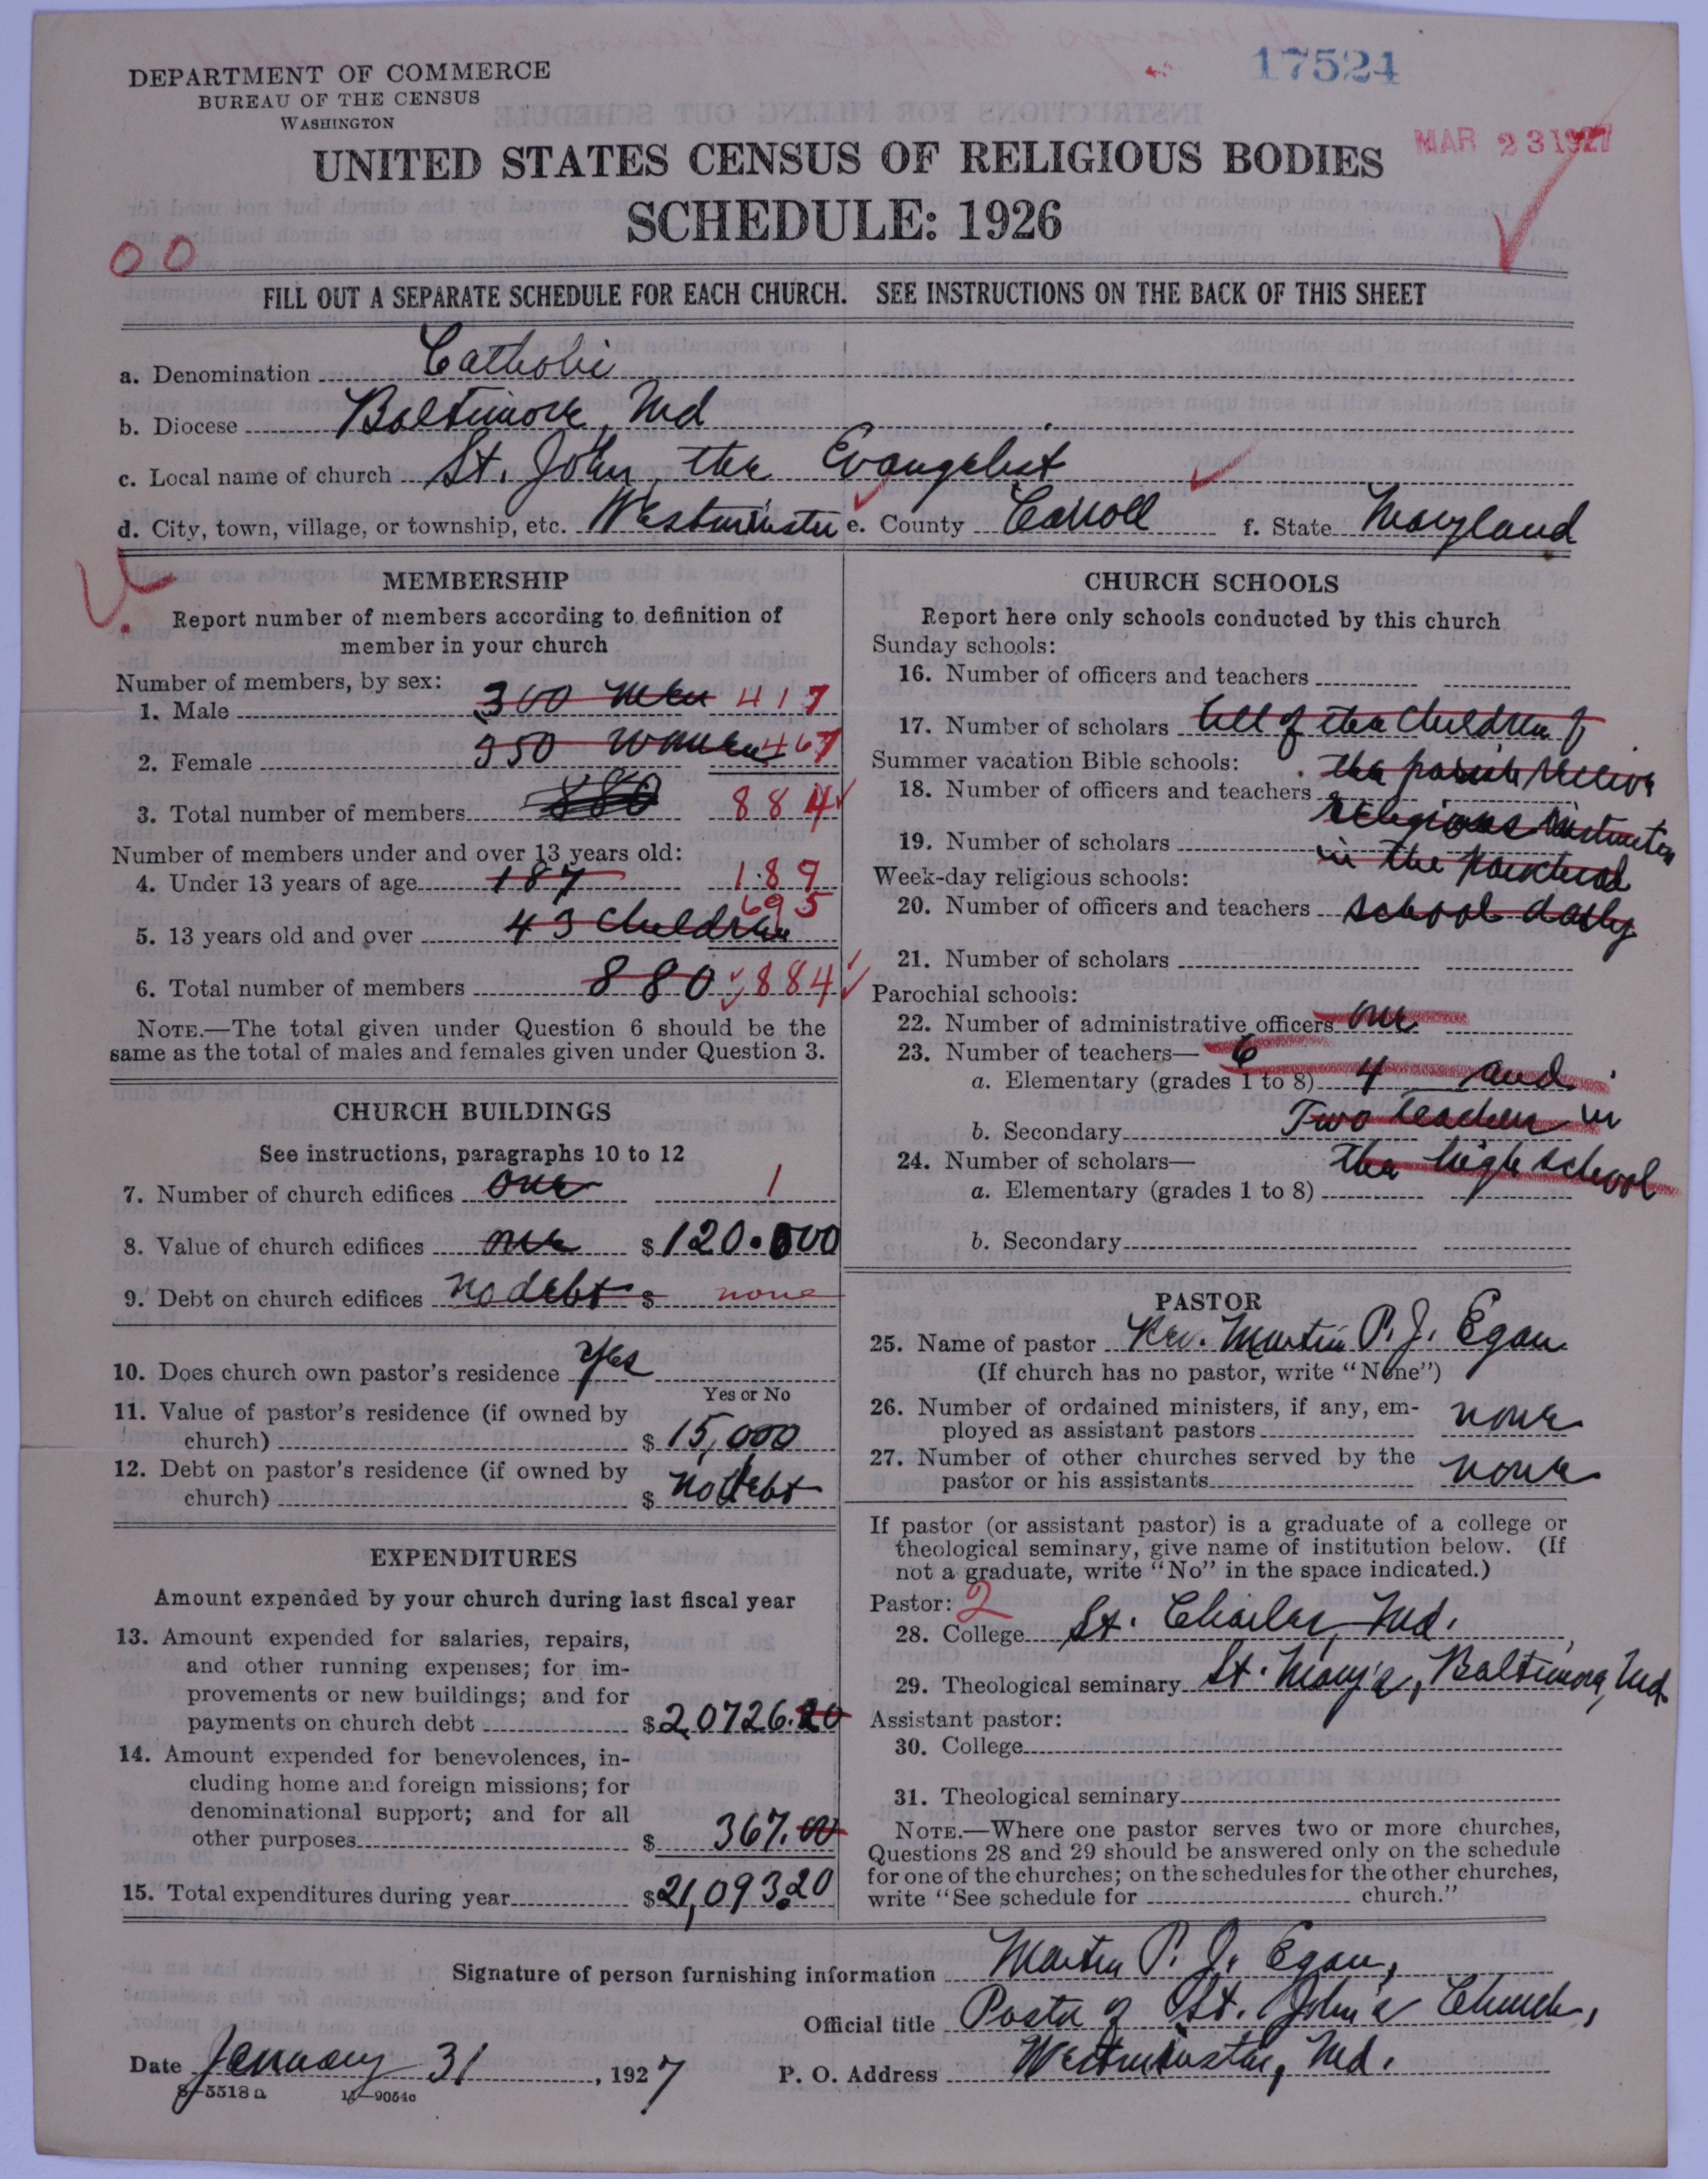 17524
DEPARTMENT OF COMMERCE
BUREAU OF THE CENSUS
WASHINGTON
MAR 23 1927
UNITED STATES CENSUS OF RELIGIOUS BODIES
SCHEDULE: 1926
00
FILL OUT A SEPARATE SCHEDULE FOR EACH CHURCH. SEE INSTRUCTIONS ON THE BACK OF THIS SHEET
a. Denomination Catholic
b. Diocese Baltimore, Md
c. Local name of church St. John, the Evangelist
d. City, town, village, or township, etc. Westminster e. County Carroll f. State Maryland
MEMBERSHIP
Report number of members according to definition of
member in your church
Number of members, by sex:
1. Male 300 men 417
2. Female 350 women 467
3. Total number of members 880 884
Number of members under and over 13 years old:
4. Under 13 years of age 187 189
5. 13 years old and over 43 children 695
6. Total number of members 880 884
NOTE.—The total given under Question 6 should be the
same as the total of males and females given under Question 3.
CHURCH BUILDINGS
See instructions, paragraphs 10 to 12
7. Number of church edifices one 1
8. Value of church edifices one $120.000
9. Debt on church edifices no debt $ none
10. Does church own pastor's residence yes
Yes or No
11. Value of pastor's residence (if owned by
church) $15,000
12. Debt on pastor's residence (if owned by
church) $ no debt
EXPENDITURES
Amount expended by your church during last fiscal year
13. Amount expended for salaries, repairs,
and other running expenses; for im-
provements or new buildings; and for
payments on church debt $20726.20
14. Amount expended for benevolences, in-
cluding home and foreign missions; for
denominational support; and for all
other purposes $ 367.00
15. Total expenditures during year $21,093.20
CHURCH SCHOOLS
Report here only schools conducted by this church
Sunday schools:
16. Number of officers and teachers
17. Number of scholars All of the children of
Summer vacation Bible schools: the parish receive
18. Number of officers and teachers religious instruction
19. Number of scholars in the parochial
Week-day religious schools:
20. Number of officers and teachers school daily
21. Number of scholars
Parochial schools:
22. Number of administrative officers one
23. Number of teachers— 6
a. Elementary (grades 1 to 8) 4 and
b. Secondary Two teachers in
24. Number of scholars— the high school
a. Elementary (grades 1 to 8)
b. Secondary
PASTOR
25. Name of pastor Rev. Martin P. J. Egan
(If church has no pastor, write "None")
26. Number of ordained ministers, if any, em-
ployed as assistant pastors none
27. Number of other churches served by the
pastor or his assistants none
If pastor (or assistant pastor) is a graduate of a college or
theological seminary, give name of institution below. (If
not a graduate, write "No" in the space indicated.)
Pastor: 2
28. College St. Charles, Md.
29. Theological seminary St. Mary's, Baltimore, Md.
Assistant pastor:
30. College
31. Theological seminary
NOTE.—Where one pastor serves two or more churches,
Questions 28 and 29 should be answered only on the schedule
for one of the churches; on the schedules for the other churches,
write "See schedule for church."
Signature of person furnishing information Martin P. J. Egan,
Official title Pastor of St. John's Church,
Date January 31, 1927 P. O. Address Westminster, Md.
8—5518a 11—9054c